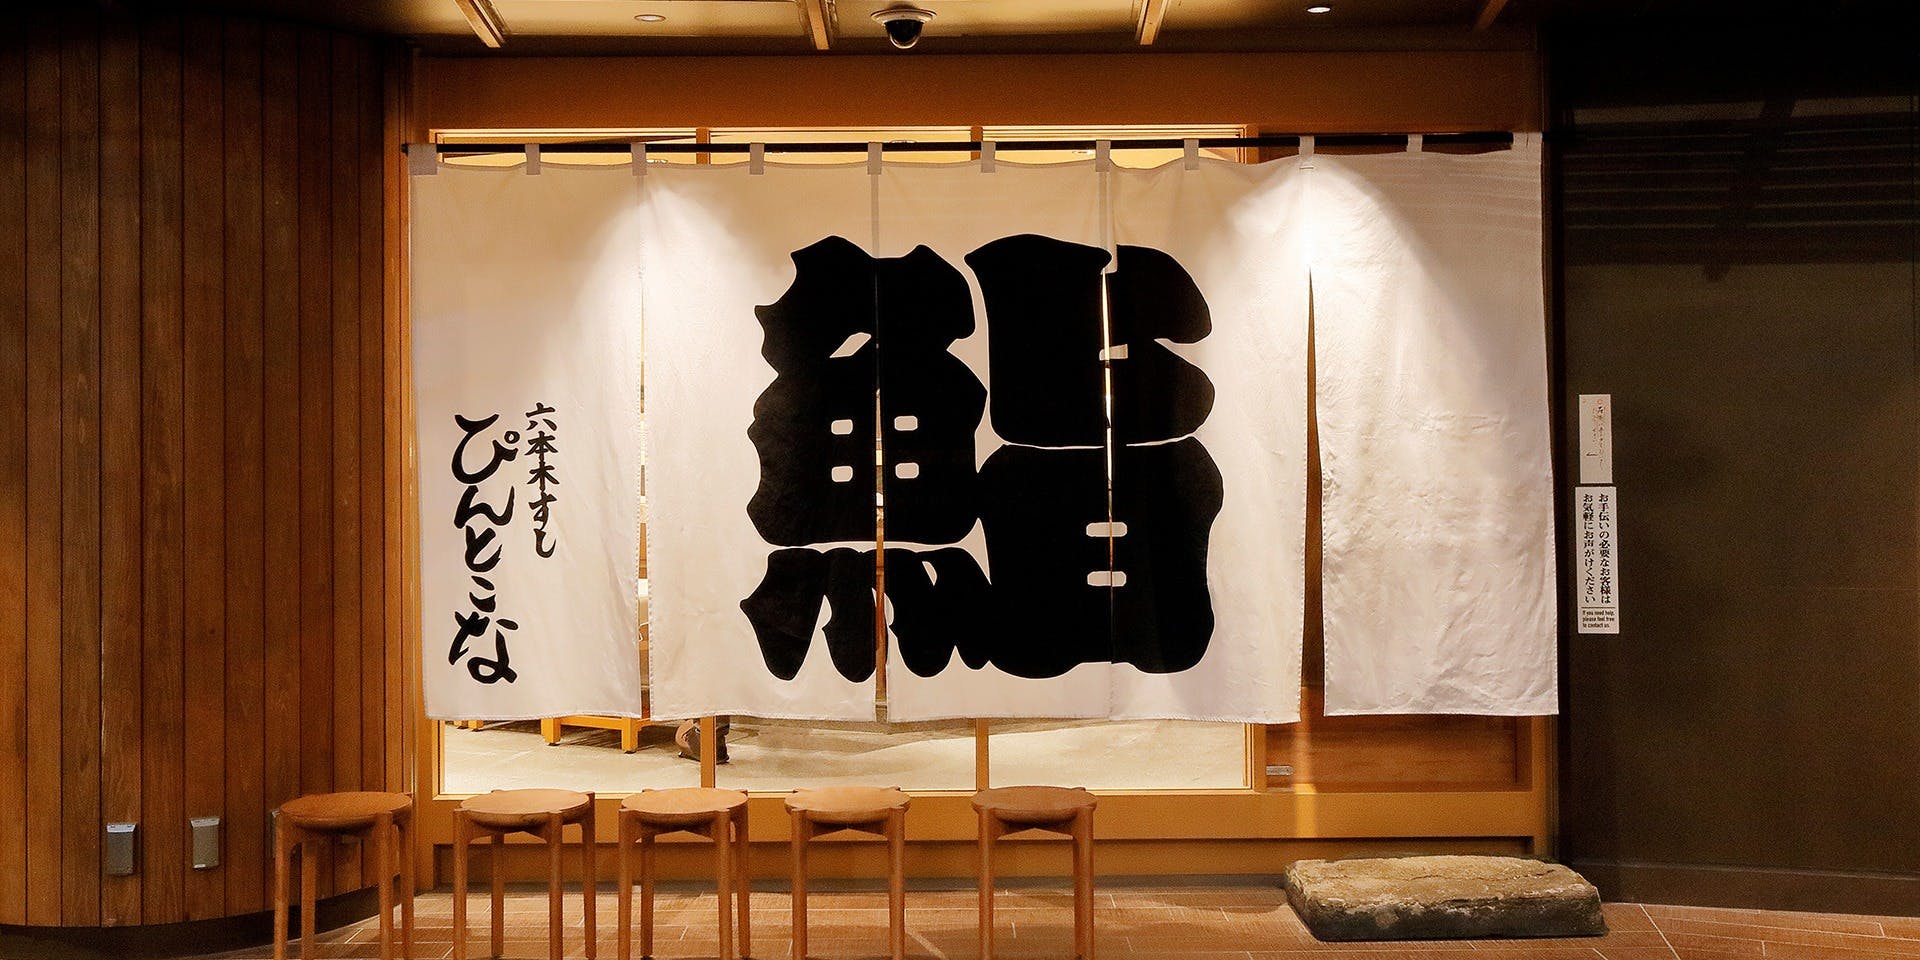 鮨
六本木すし
ぴんとこな
お手伝いの必要なお客様は
お気軽にお声がけください
If you need help,
please feel free
to contact us.